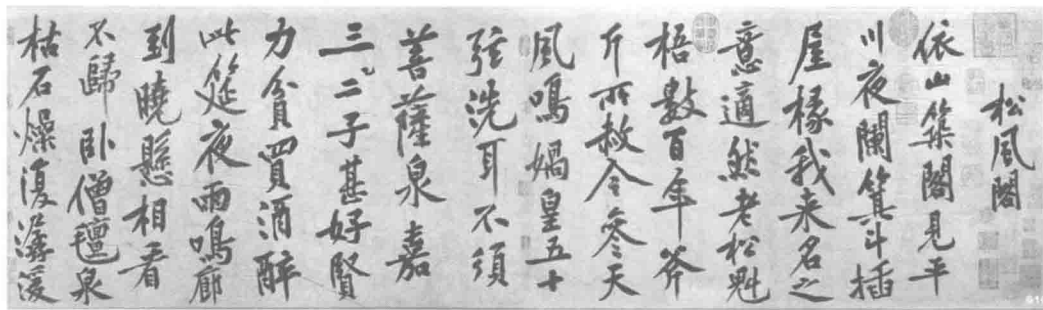 松風閣
依山築閣見平
川夜闌箕斗插
屋椽我来名之
意適然老松魁
梧數百年斧
斤所赦今參天
風鳴媧皇五十
弦洗耳不須
菩薩泉嘉
三二子甚好賢
力貧買酒醉
此筵夜雨鳴廊
到曉懸相看
不歸卧僧氊泉
枯石燥復潺湲